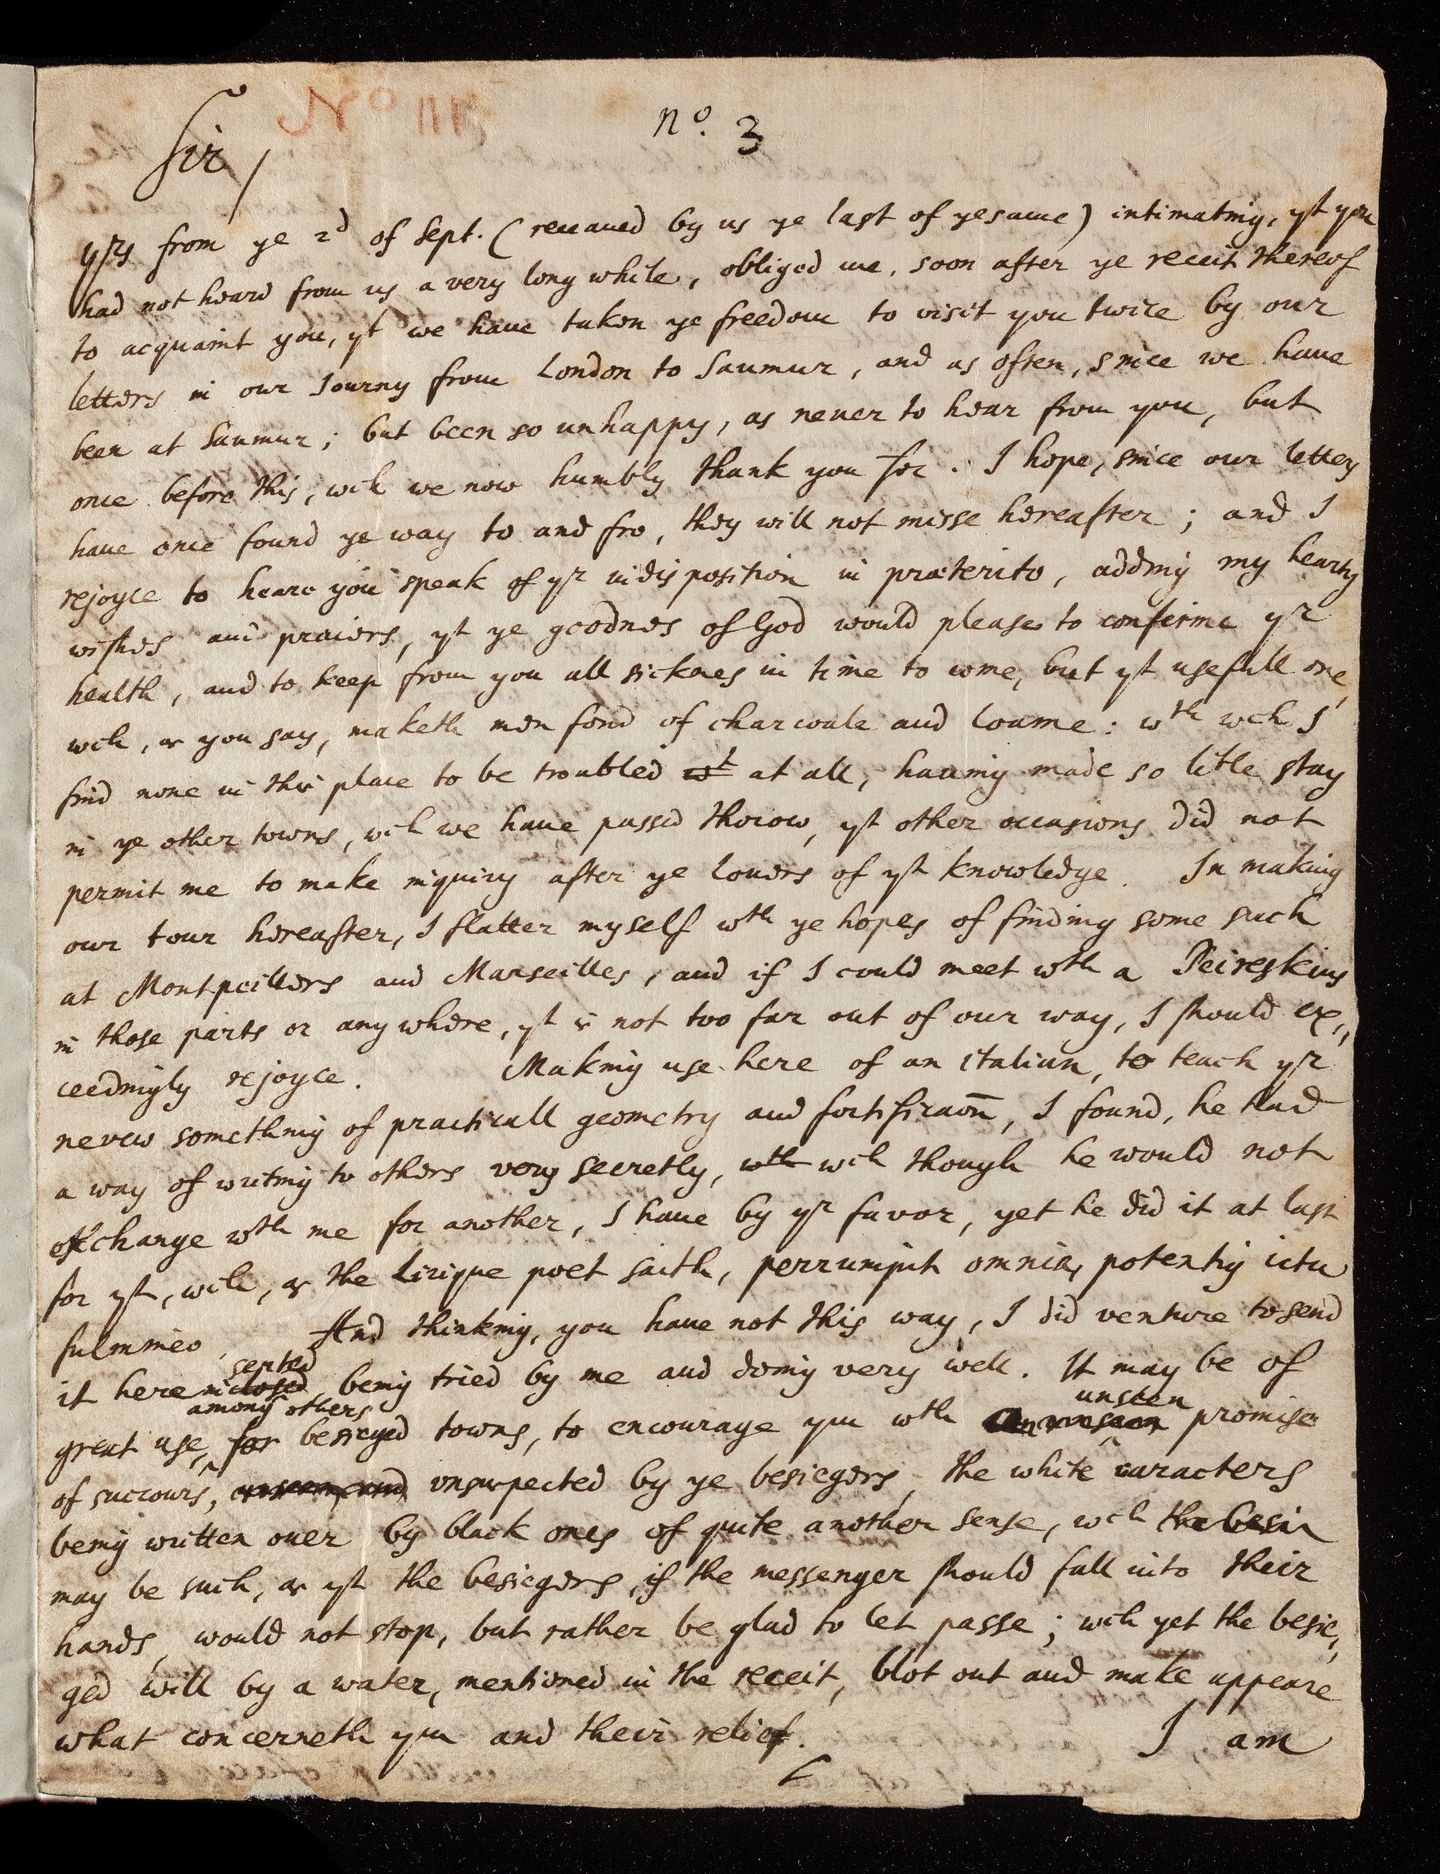 No 1115
no. 3
Sir /
yrs from ye 2d of Sept. (receaued by us ye last of ye same) intimating, yt you
had not heard from us a very long while, obliged me, soon after ye receit thereof
to acquaint you, yt we haue taken ye freedome to visit you twice by our
letters in our Journy from London to Saumur, and as often, since we haue
been at Saumur; but been so unhappy, as neuer to hear from you, but
once before this, wch we now humbly thank you for. I hope, since our letters
haue once found ye way to and fro, they will not misse hereafter; and I
rejoyce to heare you speak of yr indisposition in præterito, adding my hearty
wishes and praiers, yt ye goodnes of God would please to confirme yr
health, and to keep from you all sicknes in time to come, but yt usefull one,
wch, as you say, maketh men fond of charcoale and loame: wth wch I
find none in this place to be troubled wt at all, hauing made so litle stay
in ye other towns, wch we haue passed thorow, yt other occasions did not
permit me to make inquiry after ye louers of yt knowledge. In making
our tour hereafter, I flatter myself wth ye hopes of finding some such
at Montpelliers and Marseilles, and if I could meet wth a Peireskius
in those parts or any where, yt is not too far out of our way, I should ex,,
ceedingly rejoyce. Making use here of an italian, to teach yr
nevew something of practicall geometry and fortificaõn, I found, he had
a way of writing to others very secretly, wth wch though he would not
exchange wth me for another, I haue by yr favor, yet he did it at last
for yt, wch, as the Lirique poet saith, perrumpit omnia, potentiq ictu
fulmineo. And thinking, you haue not this way, I did venture to send
serted
it here inclosed, being tried by me and doing very well. It may be of
among others unseen
great use, for besieged towns, to encourage ym wth promise
of succours, unsuspected by ye besiegers, the white caracters
being written ouer by black ones of quite another sense, wch the besie
may be such, as yt the besiegers, if the messenger should fall into their
hands, would not stop, but rather be glad to let passe; wch yet the besie,,
ged will by a water, mentioned in the receit, blot out and make appeare
what concerneth ym and their relief. I am